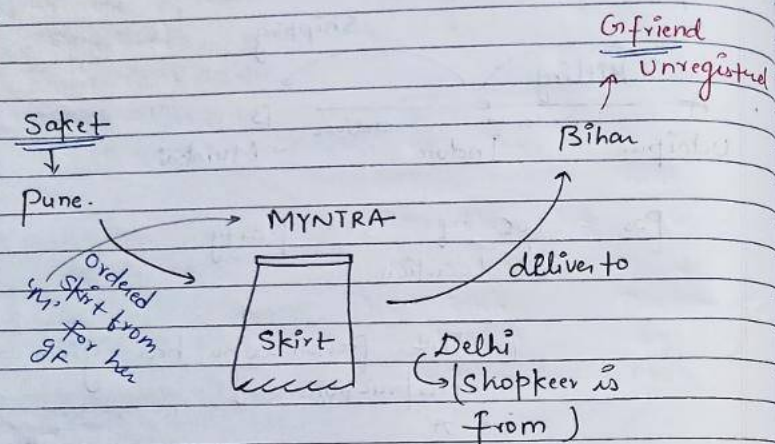 Gfriend
Unregistred
Saket
Bihar
Pune.
MYNTRA
Ordered
'm' skirt from
for her
gf
deliver to
Skirt
Delhi
(Shopkeer is
from)